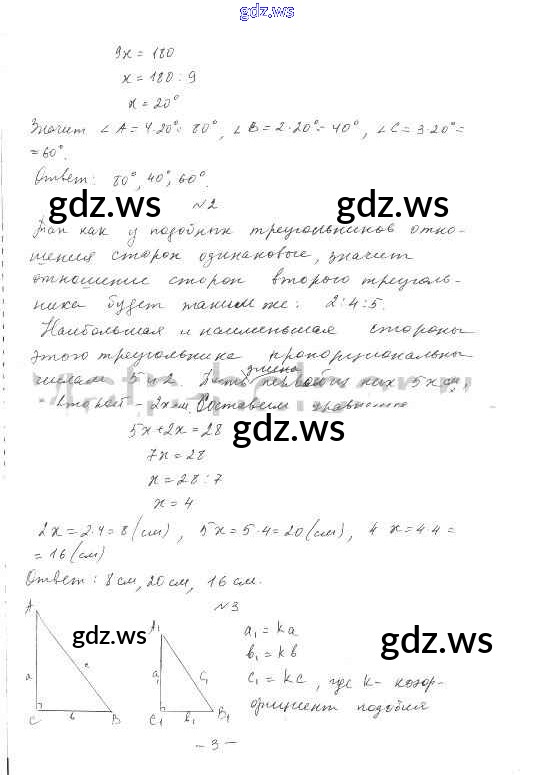 gdz.ws
9x = 180
x = 180 : 9
x = 20°
Значит ∠A = 4·20° = 80°, ∠B = 2·20° = 40°, ∠C = 3·20° =
= 60°.
Ответ: 80°, 40°, 60°.
№2
gdz.ws gdz.ws
Так как у подобных треугольников отно-
шения сторон одинаковые, значит
отношение сторон второго треуголь-
ника будет таким же: 2:4:5.
Наибольшая и наименьшая стороны
этого треугольника пропорциональны
числам 5 и 2. Пусть длина первой из них 5x см,
второй - 2x см. Составим уравнение
gdz.ws
5x + 2x = 28
7x = 28
x = 28 : 7
x = 4
2x = 2·4 = 8 (см), 5x = 5·4 = 20 (см), 4x = 4·4 =
= 16 (см)
Ответ: 8 см, 20 см, 16 см.
№3
A
a
c
C b B
A₁
a₁
c₁
C₁ b₁ B₁
a₁ = ka
b₁ = kb
c₁ = kc, где k - коэф-
фициент подобия
gdz.ws gdz.ws
- 3 -